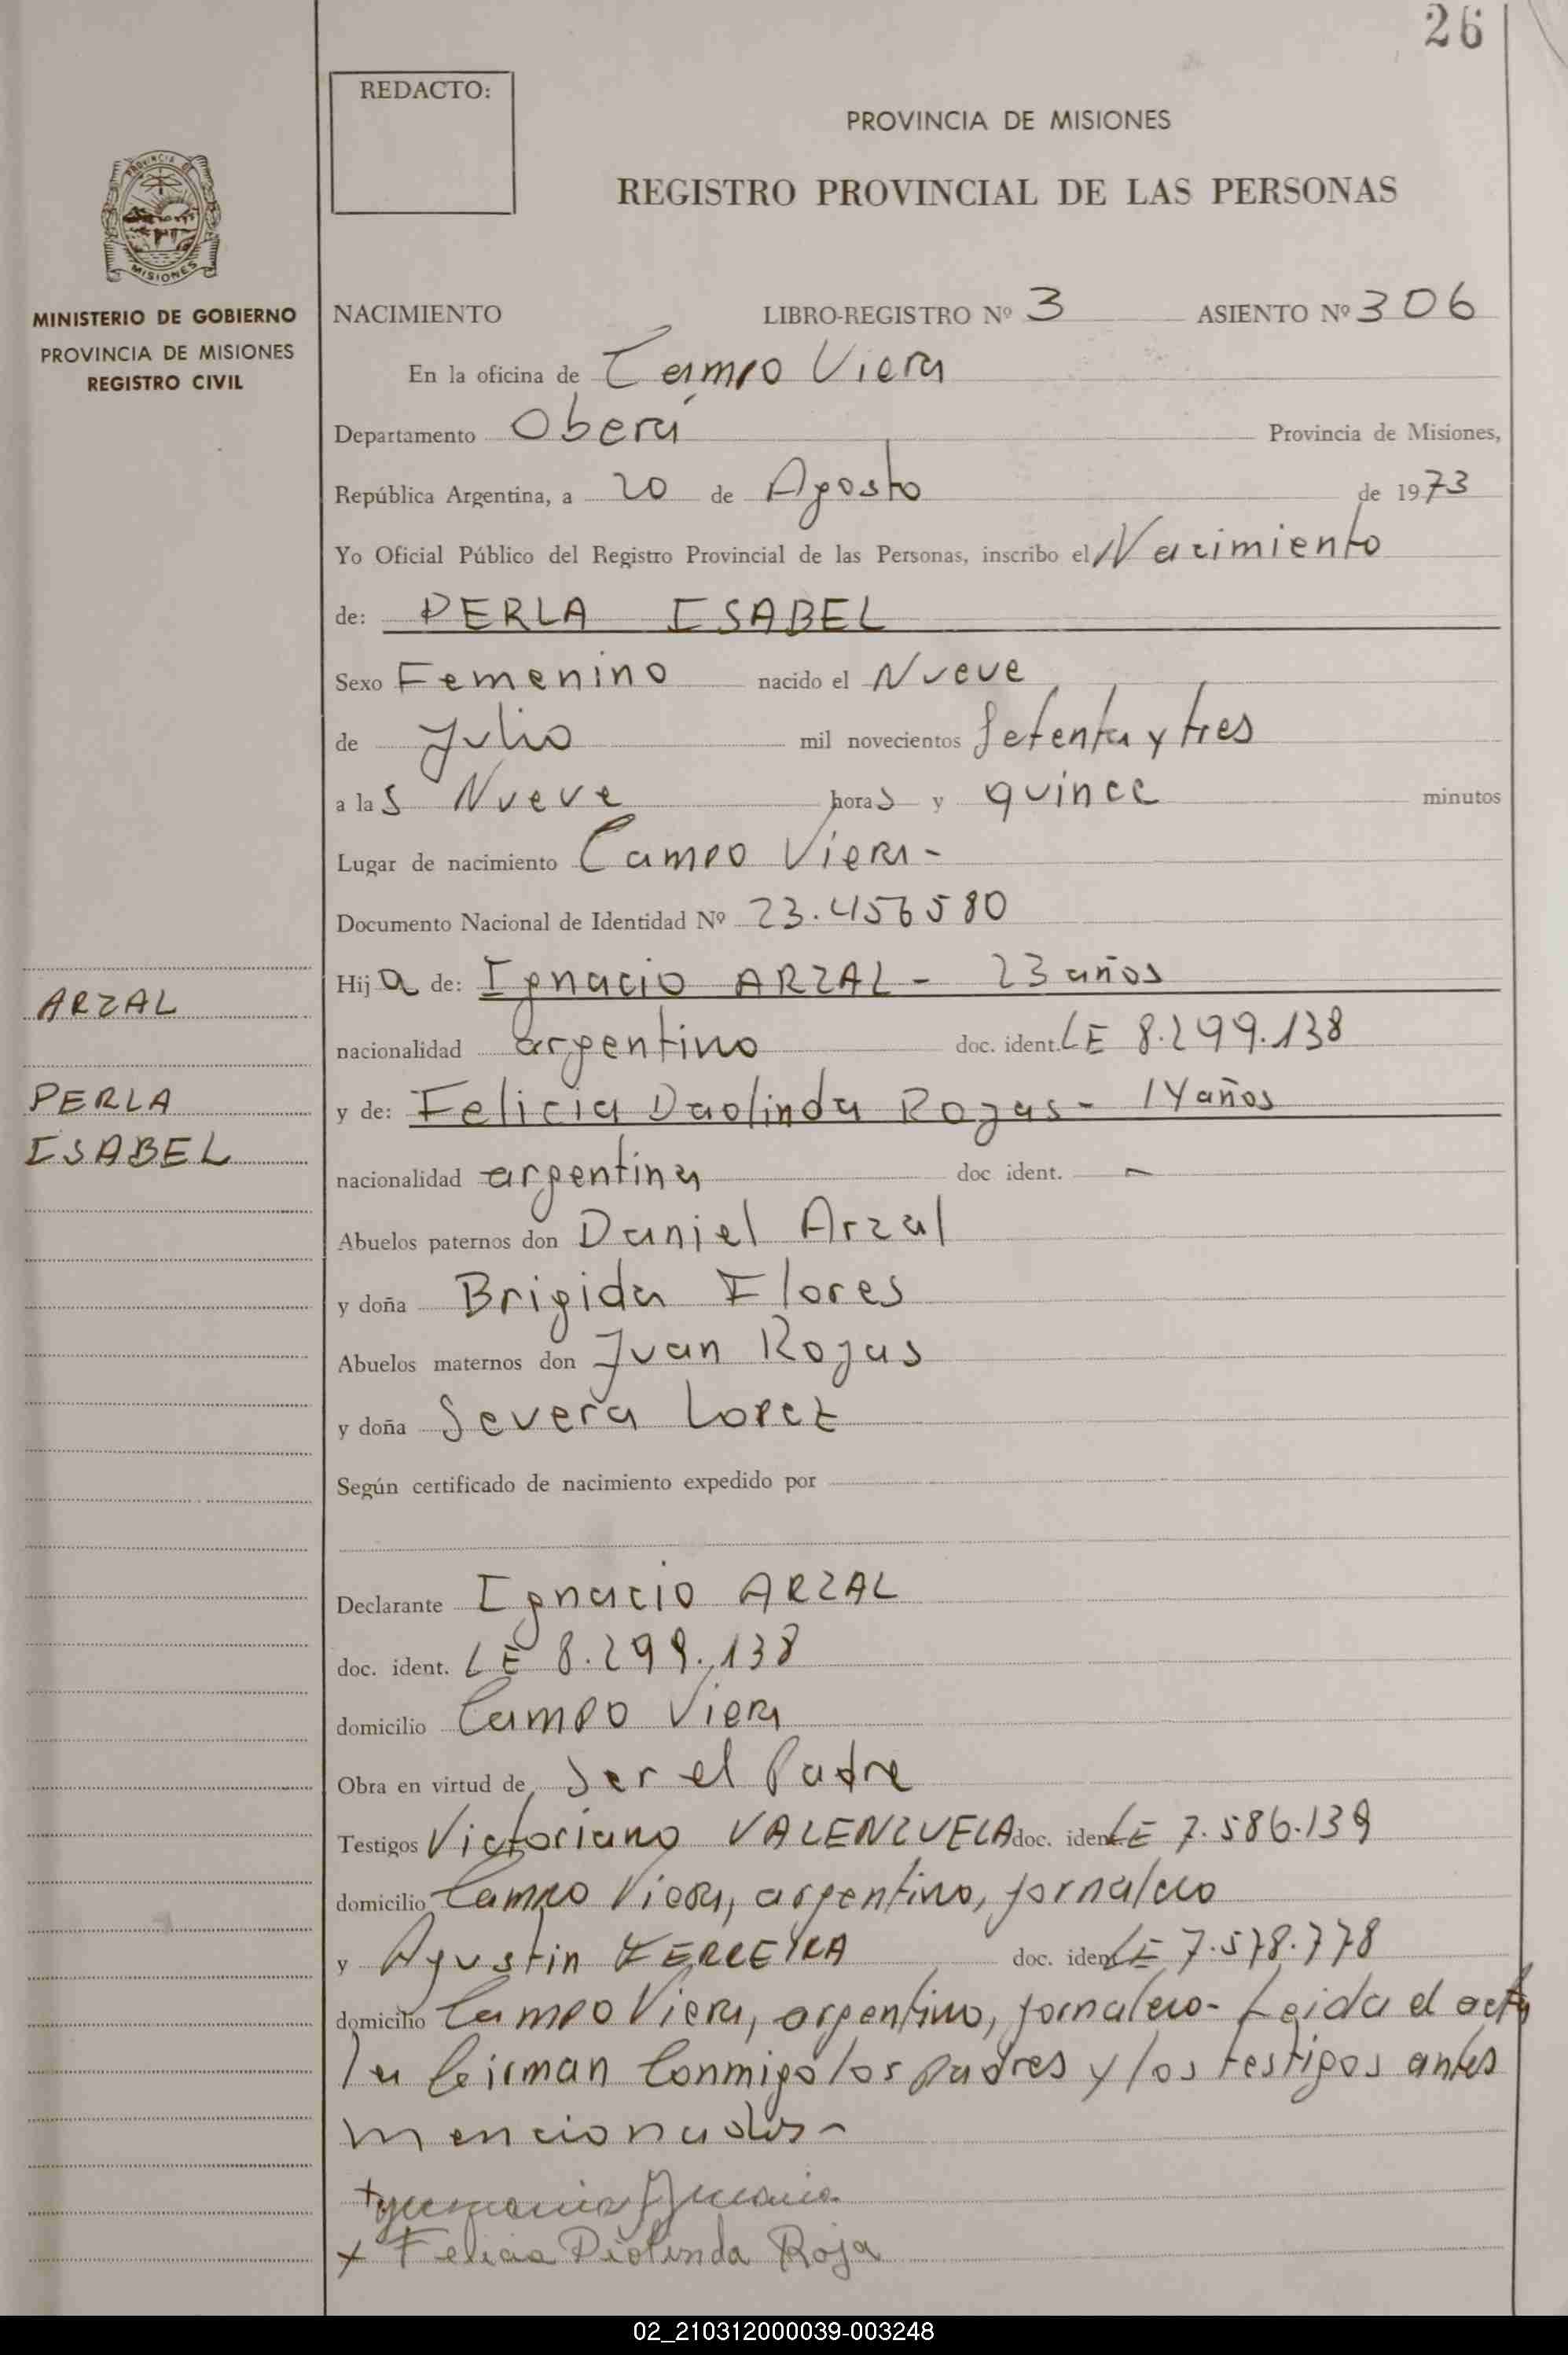 26
REDACTO:
PROVINCIA DE MISIONES
REGISTRO PROVINCIAL DE LAS PERSONAS
PROVINCIA DE
MISIONES
MINISTERIO DE GOBIERNO
PROVINCIA DE MISIONES
REGISTRO CIVIL
NACIMIENTO LIBRO-REGISTRO Nº 3 ASIENTO Nº 306
En la oficina de Campo Viera
Departamento Oberá Provincia de Misiones,
República Argentina, a 20 de Agosto de 1973
Yo Oficial Público del Registro Provincial de las Personas, inscribo el Nacimiento
de: PERLA ISABEL
Sexo Femenino nacido el Nueve
de Julio mil novecientos Setenta y tres
a las Nueve horas y quince minutos
Lugar de nacimiento Campo Viera -
Documento Nacional de Identidad Nº 23.456580
Hija de: Ignacio ARZAL - 23 años
ARZAL
nacionalidad argentino doc. ident. LE 8.299.138
PERLA
ISABEL
y de: Felicia Daolinda Rojas - 14 años
nacionalidad argentina doc ident. -
Abuelos paternos don Daniel Arzal
y doña Brigida Flores
Abuelos maternos don Juan Rojas
y doña Severa Lopez
Según certificado de nacimiento expedido por
Declarante Ignacio ARZAL
doc. ident. LE 8.299.138
domicilio Campo Viera
Obra en virtud de Ser el Padre
Testigos Victoriano VALENZUELA doc. ident. LE 7.586.139
domicilio Campo Viera, argentino, jornalero
y Agustin FERREYRA doc. ident. LE 7.578.778
domicilio Campo Viera, argentino, jornalero - Leida el acta
la firman Conmigo los padres y los testigos antes
mencionados -
x Felicia Diolinda Roja
02_210312000039-003248